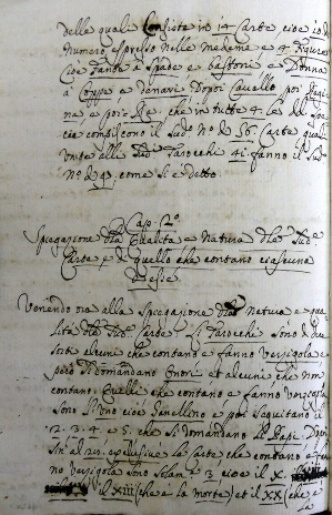 delle quali Consiste in 14 Carte, cioè 10 di
Numero espresso nelle medeme e 4 Figure
Cioè Fantà à Spade e bastoni e Donna
à Coppe e denari Dopoi Cavallo poi Regi
na e poi Rè, che in tutte 4 le
compiscono il Sud.º Nº di 56. Carte qual
unite alli Sud.i Tarocchi 41 fanno il Sud.º
Nº di 97, come si è detto
Cap. 2º
Spiegazione della Qualità e Natura delle Sud.e
Carte e di quello che contano ciascuna
d'esse
Venendo ora alla Spiegazione della Natura e qua
lità delle Sud.e Carte. Li Tarocchi sono di due
sorti alcuni che contano e fanno Verzigola e
però si domandano Onori et alcuni che non
contano. Quelli che contano e fanno verzigola
sono il Uno cioè Ganellino e poi seguitano il
2. 3. 4 e 5. che si domandano li Papi. Dopoi
Sin' al 28. exclusive le Carte che contano e fan
no verzigola sono solam.e 3. cioè il X.
il XIII (che è la morte) et il XX (che è
la